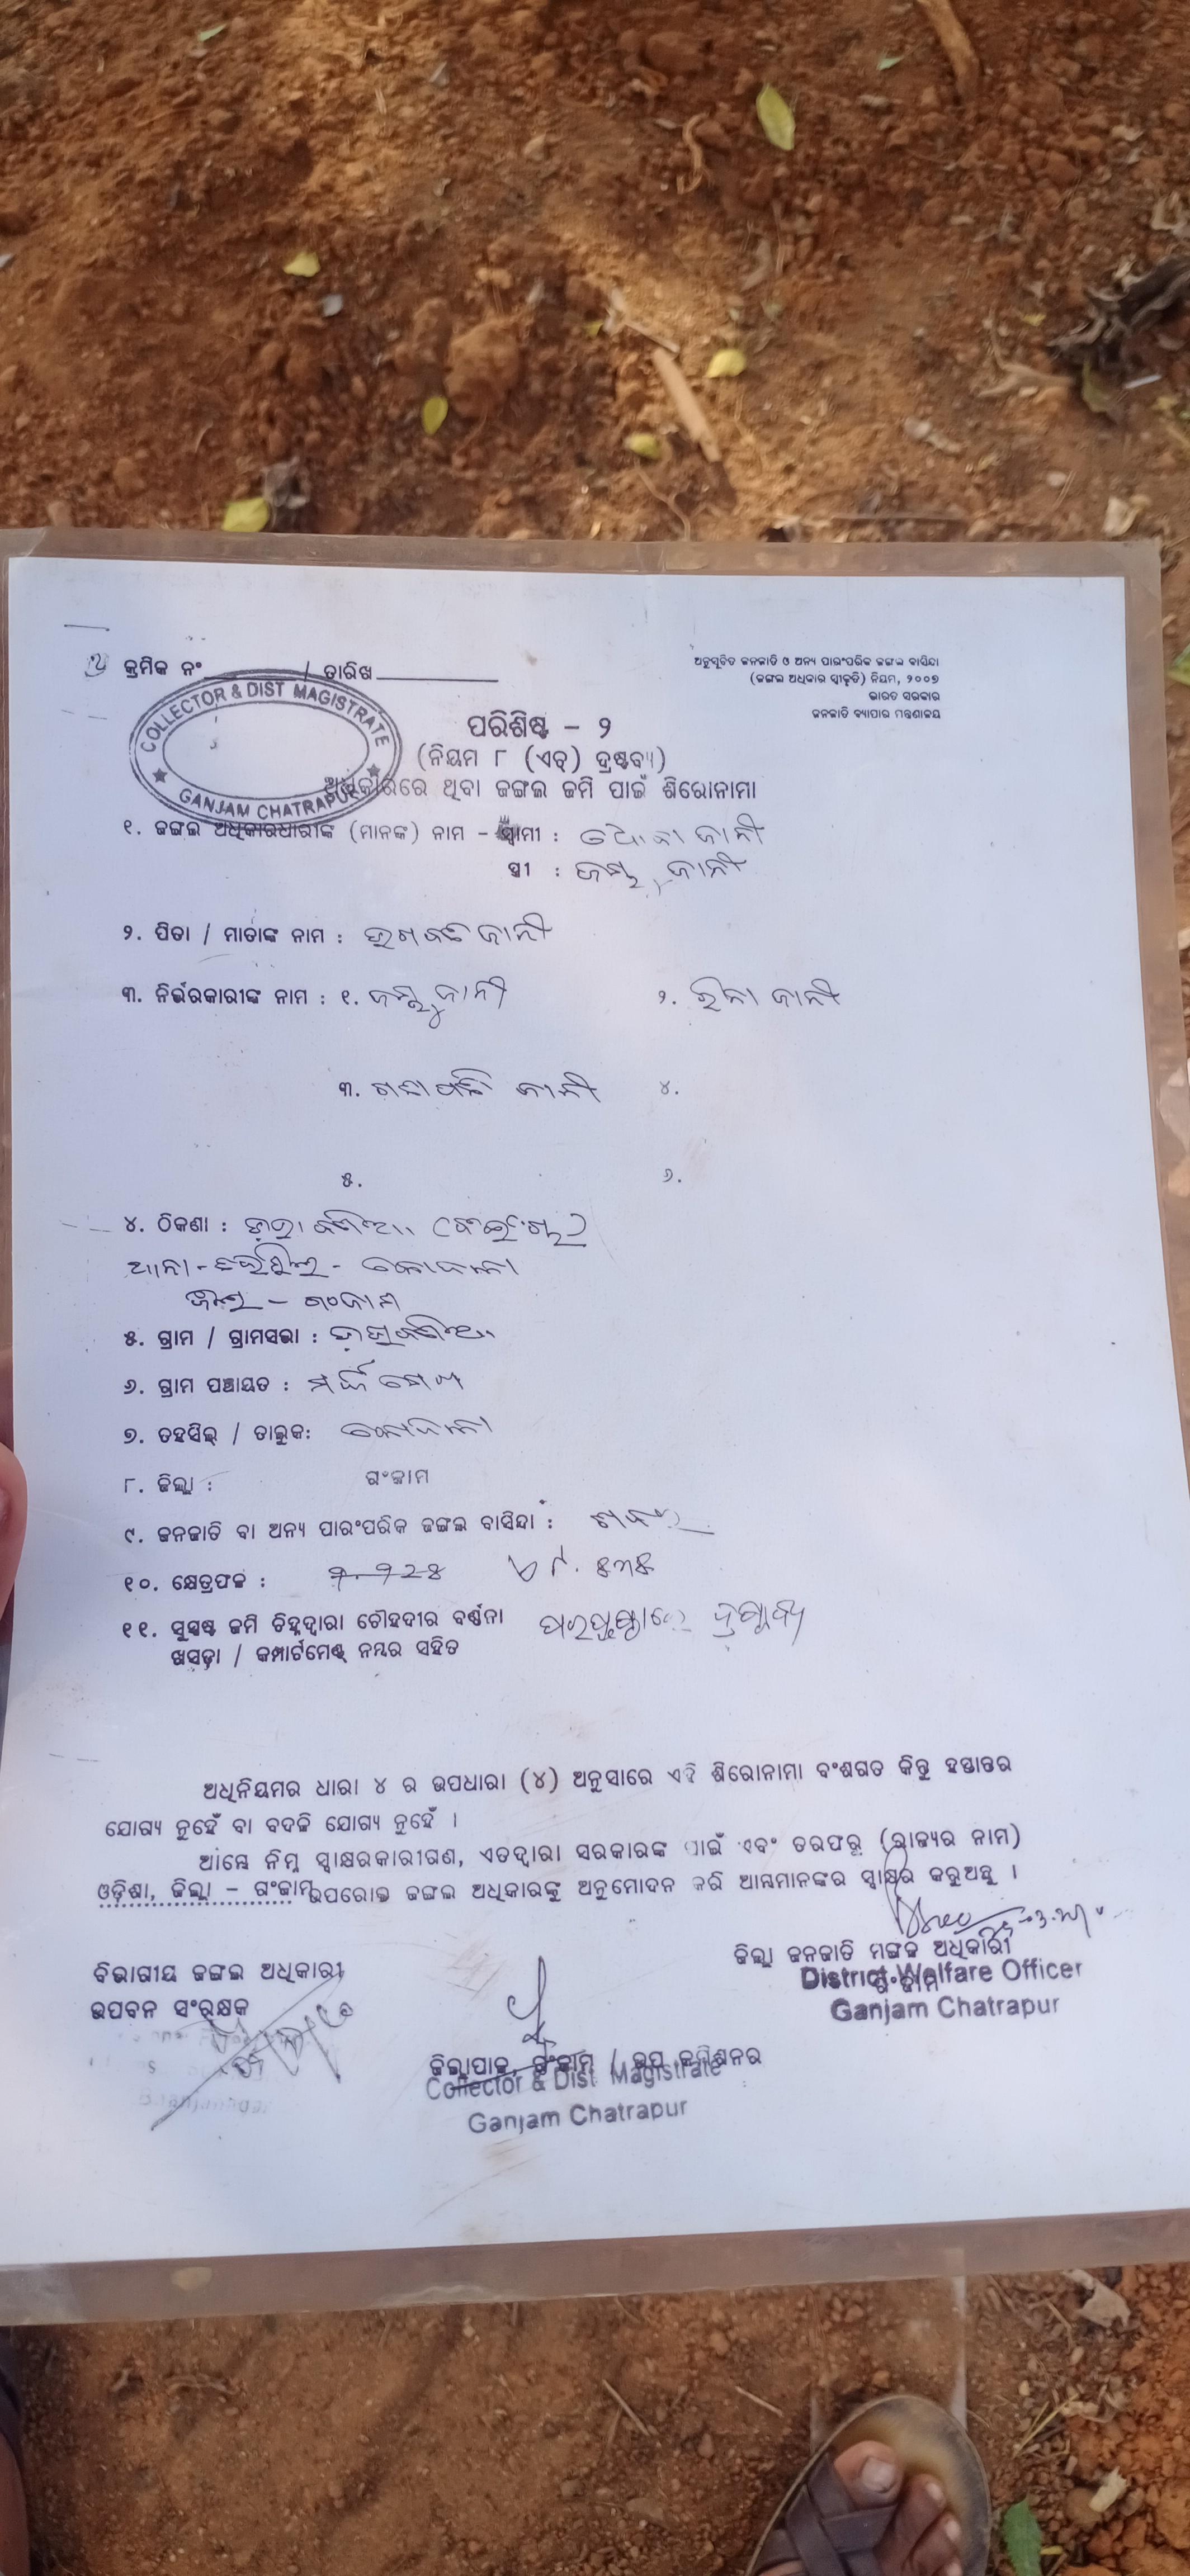 କ୍ରମିକ ନଂ / ତାରିଖ
ଅନୁସୂଚିତ ଜନଜାତି ଓ ଅନ୍ୟ ପାରଂପରିକ ଜଙ୍ଗଲ ବାସିନ୍ଦା
(ଜଙ୍ଗଲ ଅଧିକାର ସ୍ୱୀକୃତି) ନିୟମ, ୨୦୦୭
ଭାରତ ସରକାର
ଜନଜାତି ବ୍ୟାପାର ମନ୍ତ୍ରଣାଳୟ
COLLECTOR & DIST MAGISTRATE
GANJAM CHATRAPUR
ପରିଶିଷ୍ଟ – ୨
(ନିୟମ ୮ (ଏଚ୍) ଦ୍ରଷ୍ଟବ୍ୟ)
ଅଧିକାରରେ ଥିବା ଜଙ୍ଗଲ ଜମି ପାଇଁ ଶିରୋନାମା
୧. ଜଙ୍ଗଲ ଅଧିକାରଧାରୀଙ୍କ (ମାନଙ୍କ) ନାମ – ସ୍ୱାମୀ : ଜାନୀ
ସ୍ତ୍ରୀ : ଜାନୀ
୨. ପିତା / ମାତାଙ୍କ ନାମ : ଜାନୀ
୩. ନିର୍ଭରକାରୀଙ୍କ ନାମ : ୧. ଜାନୀ ୨. ରିନା ଜାନୀ
୩. ଜାନୀ ୪.
୫. ୬.
୪. ଠିକଣା :
ଥାନା - କୋଦଳା
ଜିଲ୍ଲା – ଗଂଜାମ
୫. ଗ୍ରାମ / ଗ୍ରାମସଭା :
୬. ଗ୍ରାମ ପଞ୍ଚାୟତ :
୭. ତହସିଲ୍ / ତାଲୁକ: କୋଦଳା
୮. ଜିଲ୍ଲା : ଗଂଜାମ
୯. ଜନଜାତି ବା ଅନ୍ୟ ପାରଂପରିକ ଜଙ୍ଗଲ ବାସିନ୍ଦା :
୧୦. କ୍ଷେତ୍ରଫଳ :
୧୧. ସୁସ୍ପଷ୍ଟ ଜମି ଚିହ୍ନଦ୍ୱାରା ଚୌହଦୀର ବର୍ଣ୍ଣନା ପରପୃଷ୍ଠାରେ ଦ୍ରଷ୍ଟବ୍ୟ
ଖସଡ଼ା / କମ୍ପାର୍ଟମେଣ୍ଟ୍ ନମ୍ବର ସହିତ
ଅଧିନିୟମର ଧାରା ୪ ର ଉପଧାରା (୪) ଅନୁସାରେ ଏହି ଶିରୋନାମା ବଂଶଗତ କିନ୍ତୁ ହସ୍ତାନ୍ତର
ଯୋଗ୍ୟ ନୁହେଁ ବା ବଦଳି ଯୋଗ୍ୟ ନୁହେଁ ।
ଆମ୍ଭେ ନିମ୍ନ ସ୍ୱାକ୍ଷରକାରୀଗଣ, ଏତଦ୍ୱାରା ସରକାରଙ୍କ ପାଇଁ ଏବଂ ତରଫରୁ (ରାଜ୍ୟର ନାମ)
ଓଡ଼ିଶା, ଜିଲ୍ଲା – ଗଂଜାମ ଉପରୋକ୍ତ ଜଙ୍ଗଲ ଅଧିକାରଙ୍କୁ ଅନୁମୋଦନ କରି ଆମ୍ଭମାନଙ୍କର ସ୍ୱାକ୍ଷର କରୁଅଛୁ ।
ଜିଲ୍ଲା ଜନଜାତି ମଙ୍ଗଳ ଅଧିକାରୀ
ଗଂଜାମ
District Welfare Officer
Ganjam Chatrapur
ବିଭାଗୀୟ ଜଙ୍ଗଲ ଅଧିକାରୀ
ଉପବନ ସଂରକ୍ଷକ
ଜିଲ୍ଲାପାଳ, ଗଂଜାମ / ଉପ କମିଶନର
Collector & Dist Magistrate
Ganjam Chatrapur